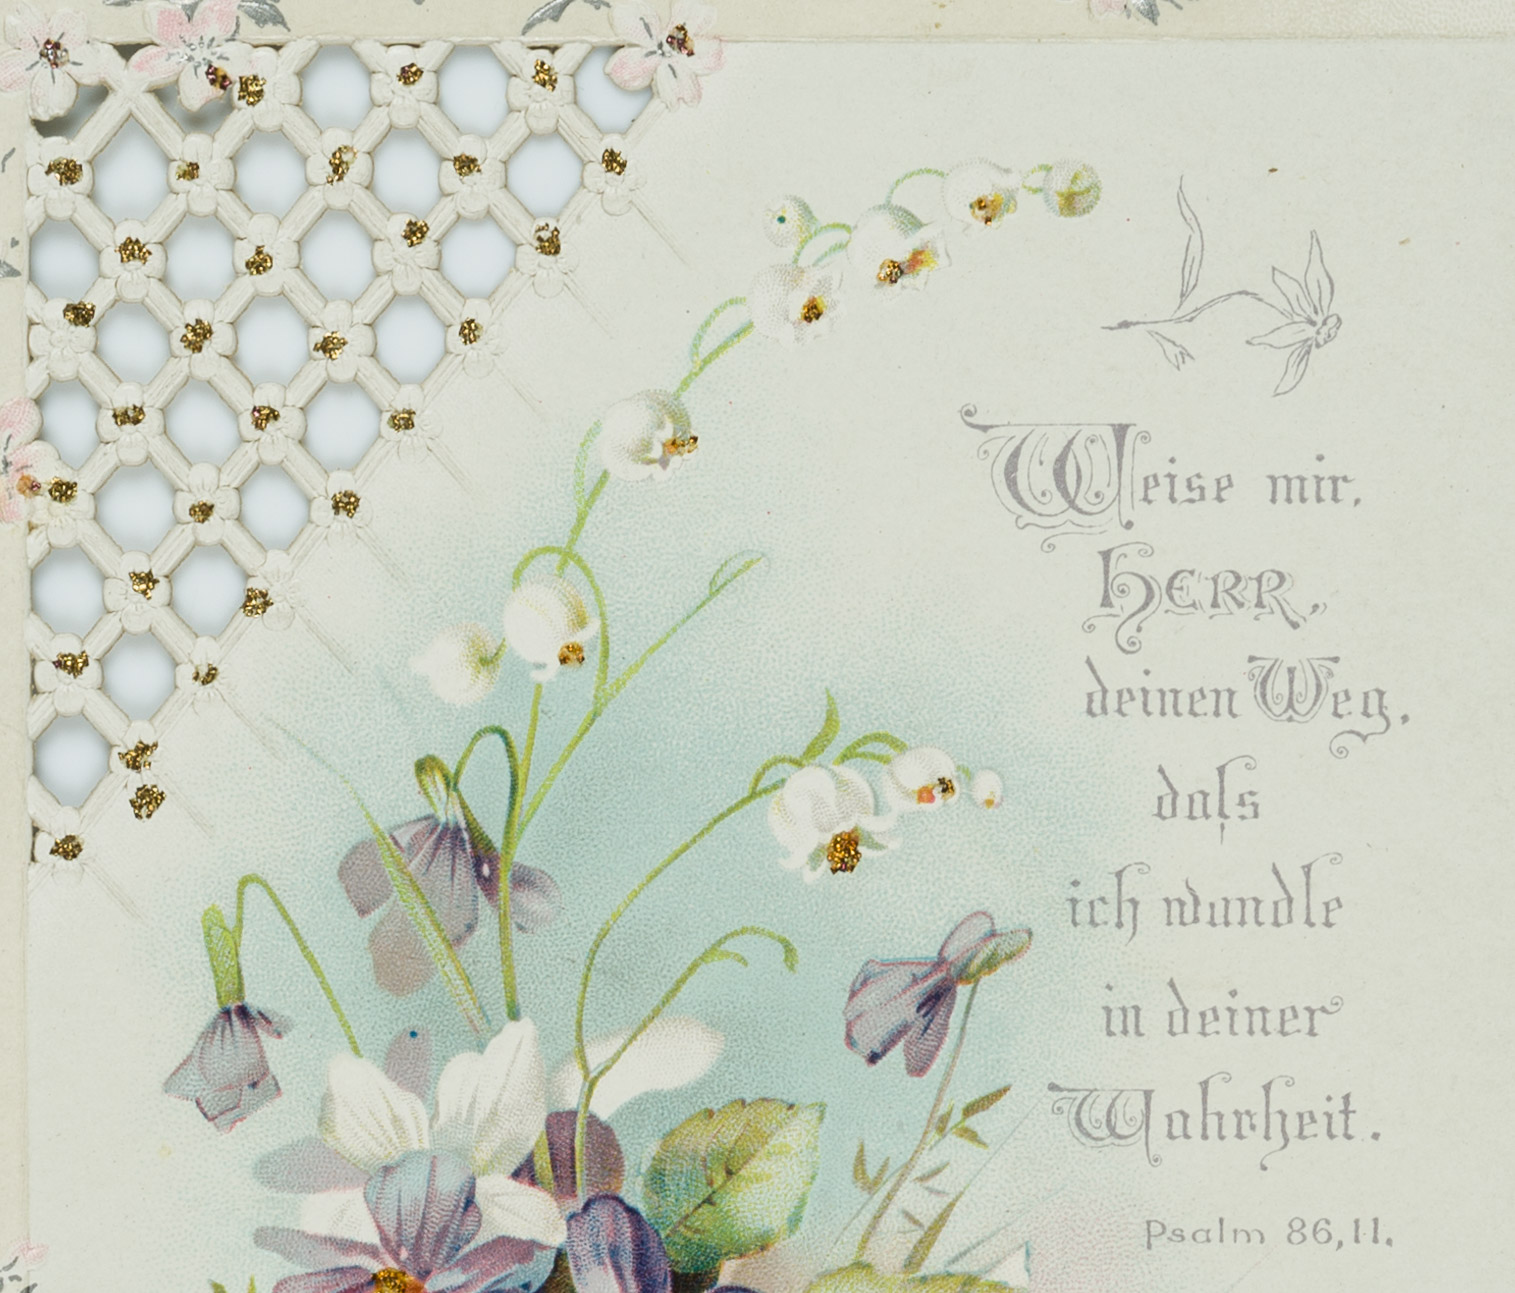 Weise mir,
HERR,
deinen Weg,
daſs
ich wandle
in deiner
Wahrheit.
Psalm 86,11.